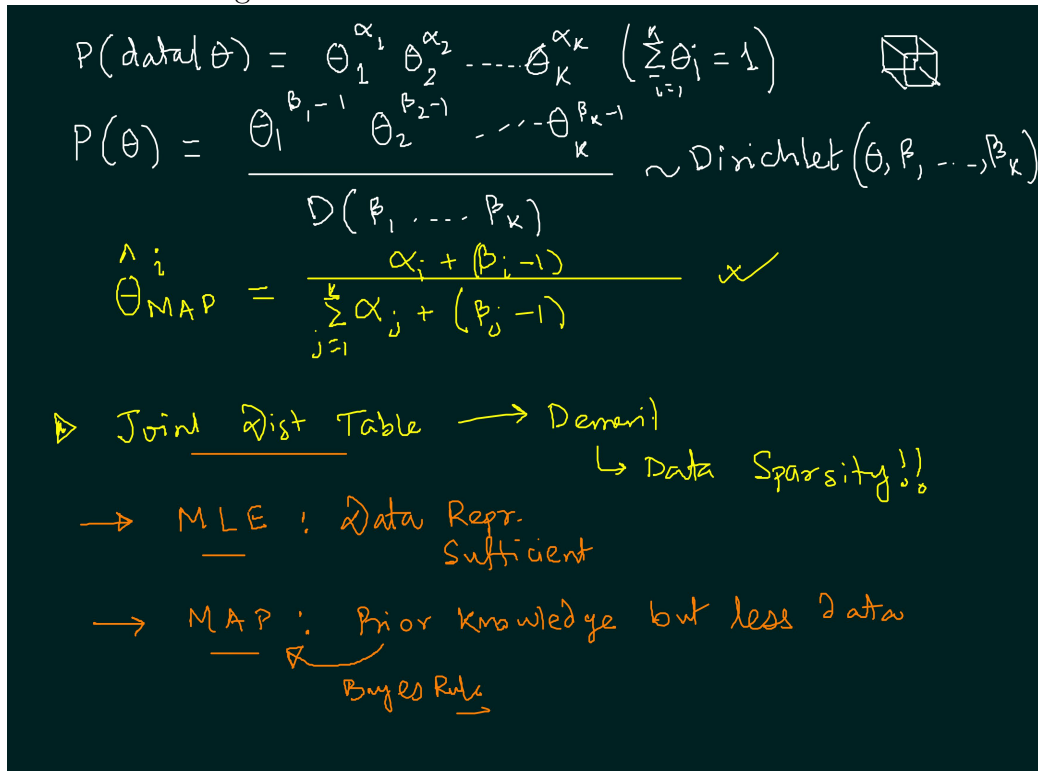 P(data|θ) = θ₁^α₁ θ₂^α₂ ----- θ_K^α_K (∑_{i=1}^K θ_i = 1)
P(θ) = θ₁^{β₁-1} θ₂^{β₂-1} ----- θ_K^{β_K-1} / D(β₁ .... β_K) ~ Dirichlet(θ, β₁ ---, β_K)
θ̂^i_MAP = α_i + (β_i -1) / ∑_{j=1}^K α_j + (β_j -1)
Joint Dist Table → Demerit
↳ Data Sparsity!!
→ MLE : Data Repr.
Sufficient
→ MAP : Prior Knowledge but less data
Bayes Rule